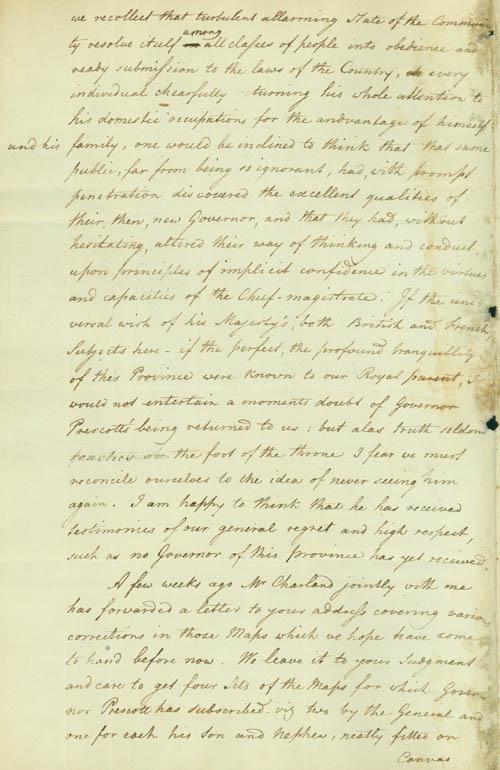 we recollect that turbulent allarming State of the Communi-
ty resolve itself among all classes of people into obedience and
ready submission to the laws of the Country, every
individual chearfully turning his whole attention to
his domestic occupations for the andvantage of himself
and his family, one would be inclined to think that that same
public, far from being so ignorant, had, with prompt
penetration discovered the excellent qualities of
their, then, new Governor, and that they had, without
hesitating, altered their way of thinking and conduct,
upon principles of implicit confidence in the virtues
and capacities of the Chief-magistrate. If the uni-
versal wish of his Majesty's, both British and French,
Subjects here - if the perfect, the profound tranquillity
of this Province were known to our Royal parent, I
would not entertain a moments doubt of Governor
Prescott's being returned to us: but alas truth seldom
reaches the foot of the throne. I fear we must
reconcile ourselves to the idea of never seeing him
again. I am happy to think that he has received
testimonies of our general regret and high respect,
such as no Governor of this province has yet received.
A few weeks ago Mr Charland jointly with me
has forwarded a letter to your address covering various
corrections in those Maps which we hope have come
to hand before now. We leave it to your Judgment
and care to get four sets of the Maps for which Gover-
nor Prescott has subscribed viz two by the General and
one for each his son and nephew, neatly fitted on
Canvas